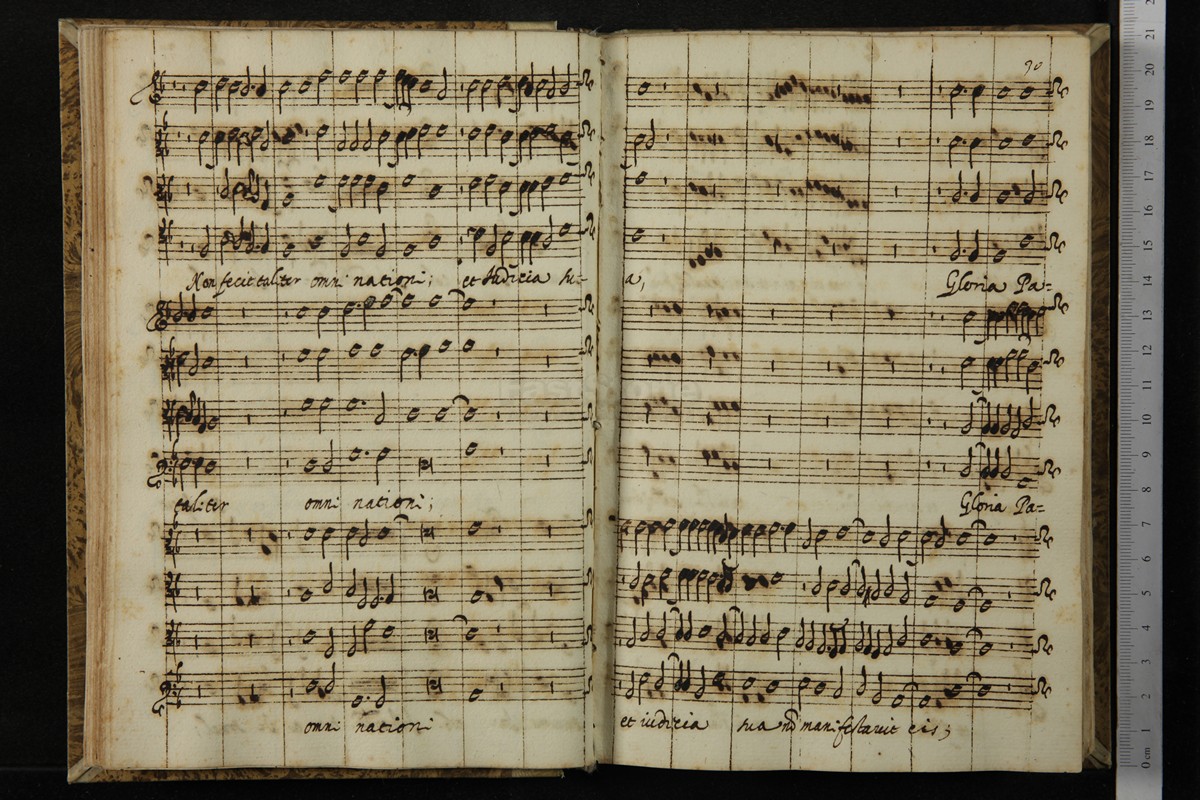 90
Non fecit taliter omni nationi; et Iudicia su-
taliter omni nationi;
omni nationi
a, Gloria Pa=
Gloria Pa=
et iudicia sua nō manifestavit eis;